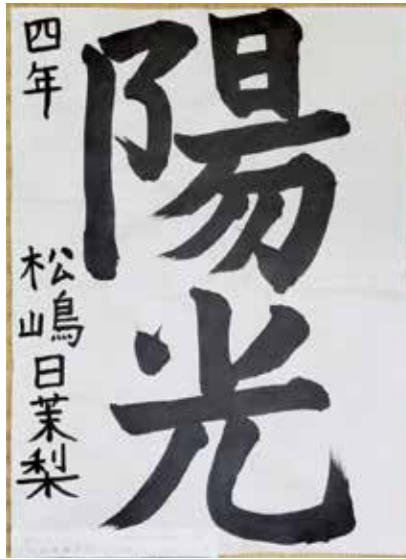 陽光
四年
松嶋日茉梨